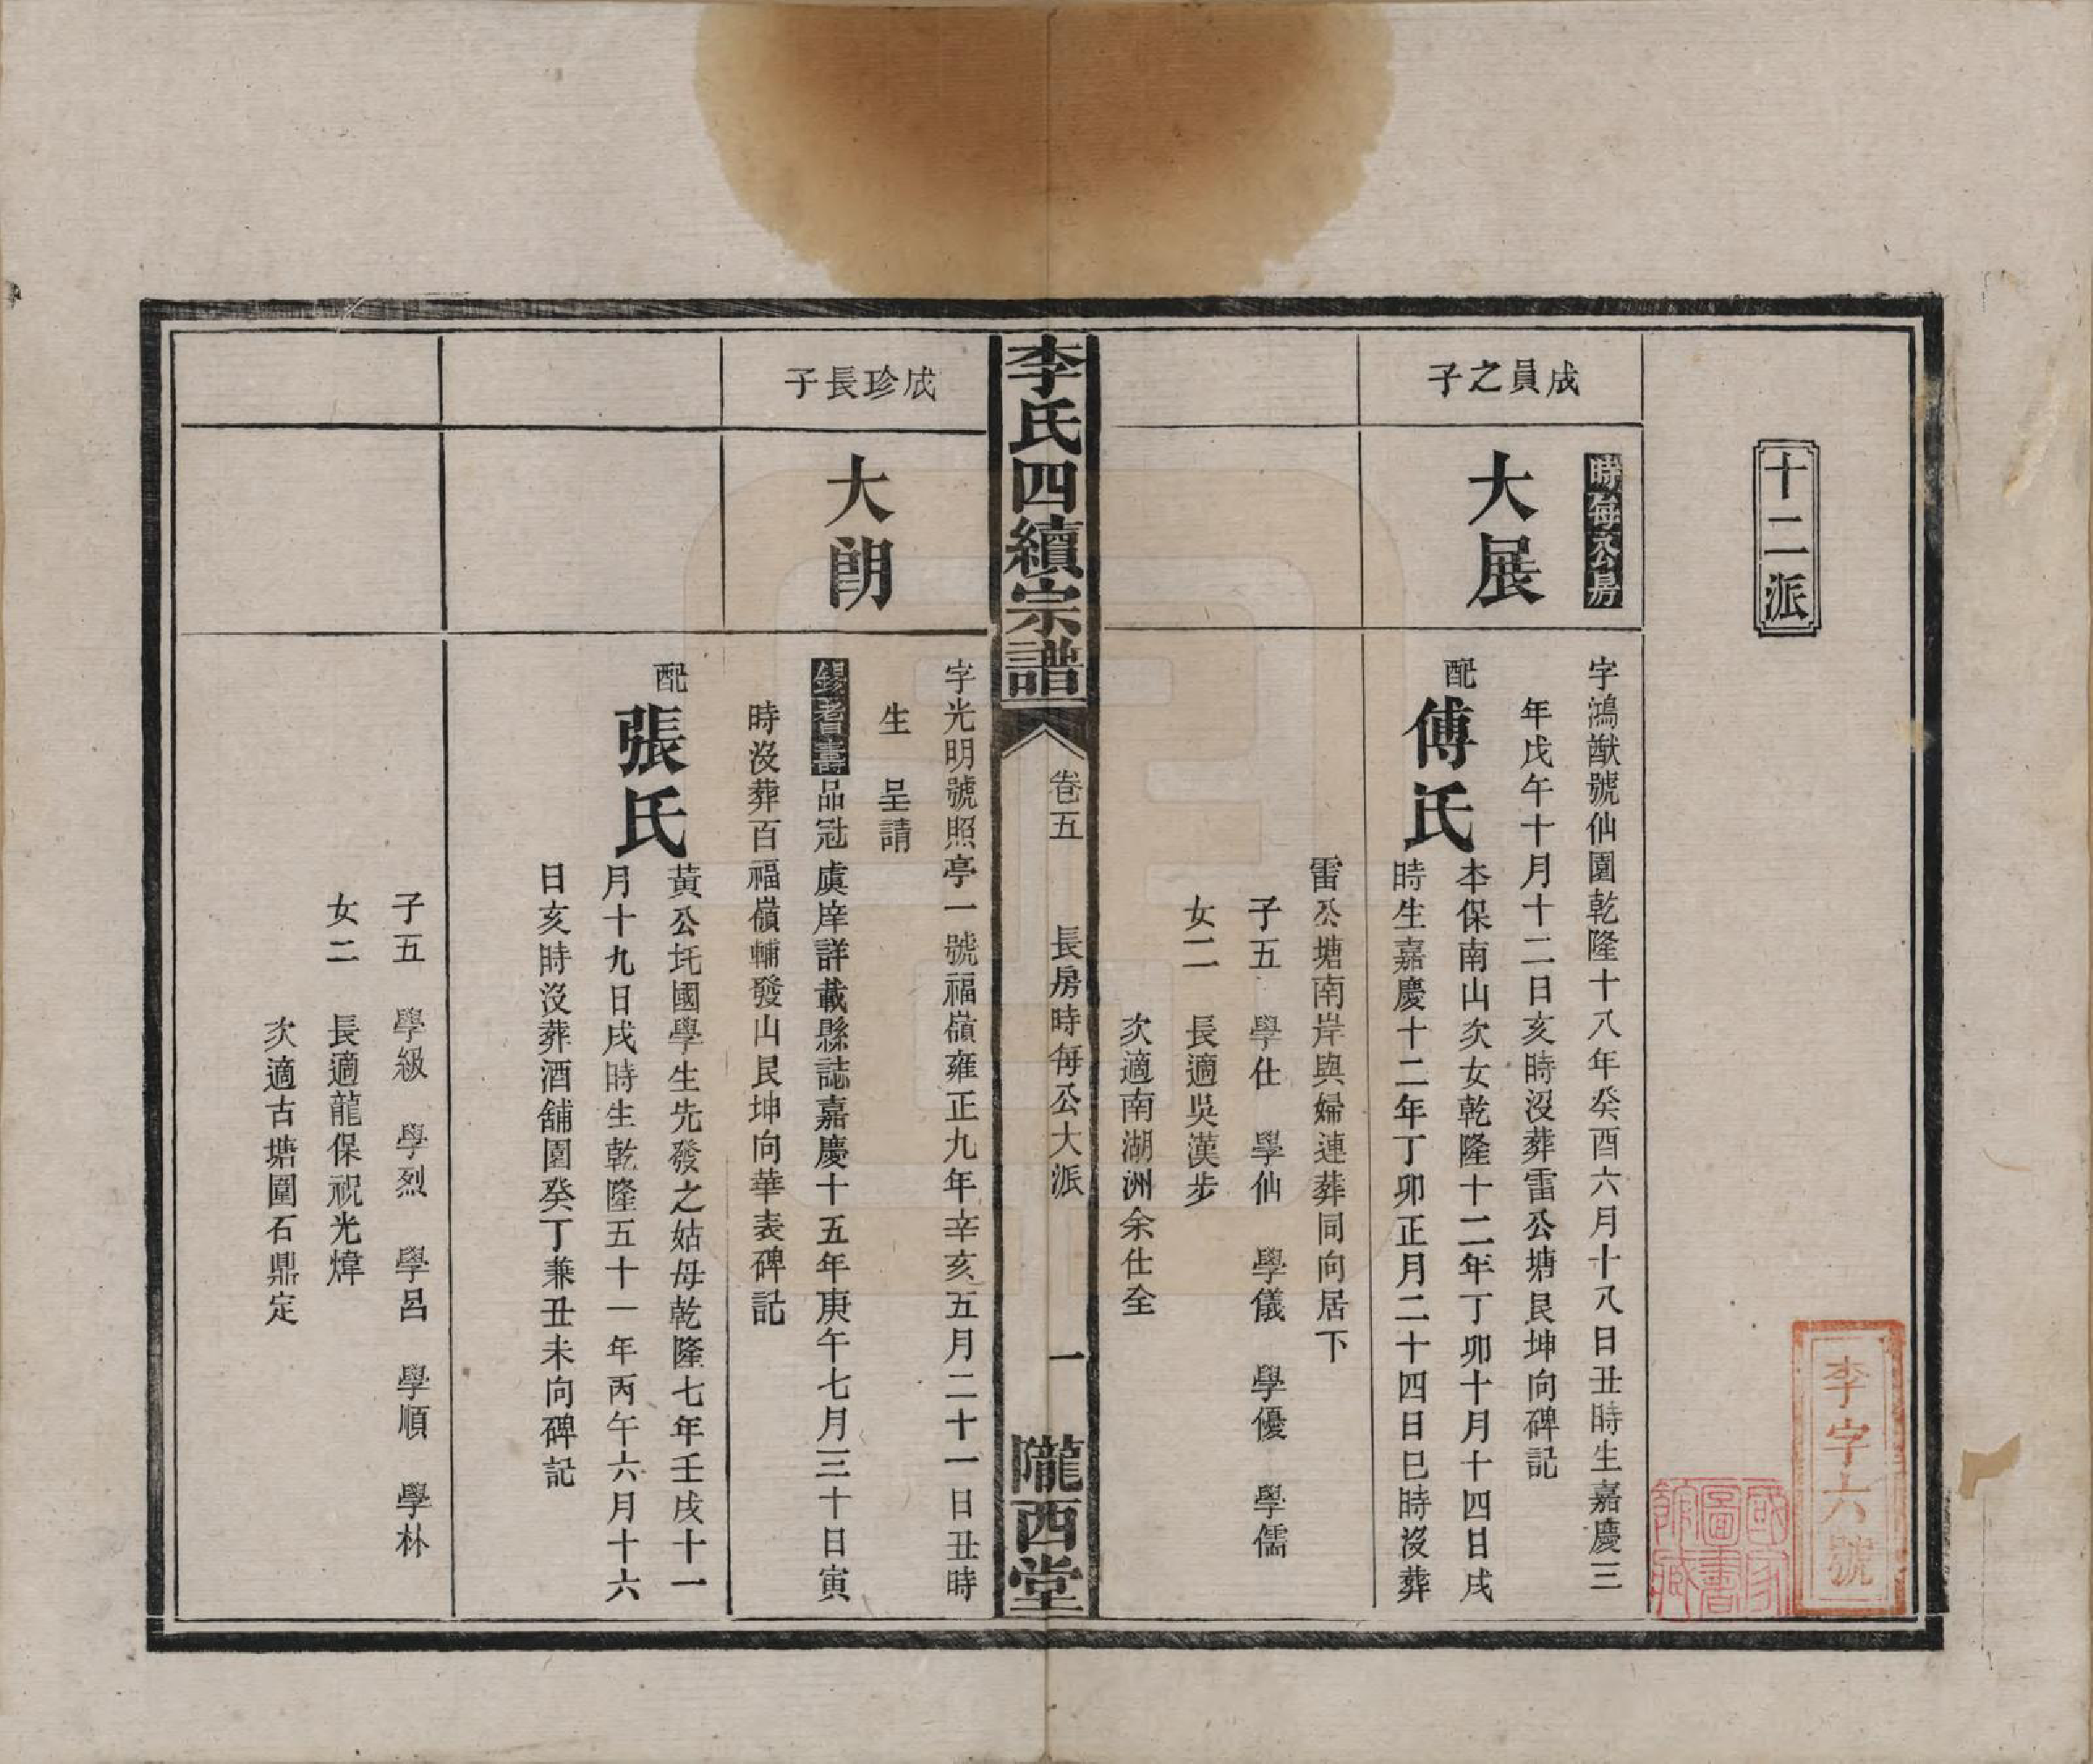 十二派
李字六號
國家圖書館藏
成員之子
時每公房
大展
字鴻猷號仙園乾隆十八年癸酉六月十八日丑時生嘉慶三
年戊午十月十二日亥時沒葬雷公塘艮坤向碑記
配
傅氏
本保南山次女乾隆十二年丁卯十月十四日戌
時生嘉慶十二年丁卯正月二十四日巳時沒葬
雷公塘南岸與婦連葬同向居下
子五 學仕 學仙 學儀 學優 學儒
女二 長適吳漢步
次適南湖洲余仕全
李氏四續宗譜
卷五 長房時每公大派 一
隴西堂
成珍長子
大朗
字光明號照亭一號福嶺雍正九年辛亥五月二十一日丑時
生 呈請
錫耆員壽品冠虞庠詳載縣誌嘉慶十五年庚午七月三十日寅
時沒葬百福嶺輔發山艮坤向華表碑記
配
張氏
黃公圫國學生先發之姑母乾隆七年壬戌十一
月十九日戌時生乾隆五十一年丙午六月十六
日亥時沒葬酒舖園癸丁兼丑未向碑記
子五 學級 學烈 學呂 學順 學林
女二 長適龍保祝光煒
次適古塘圍石鼎定